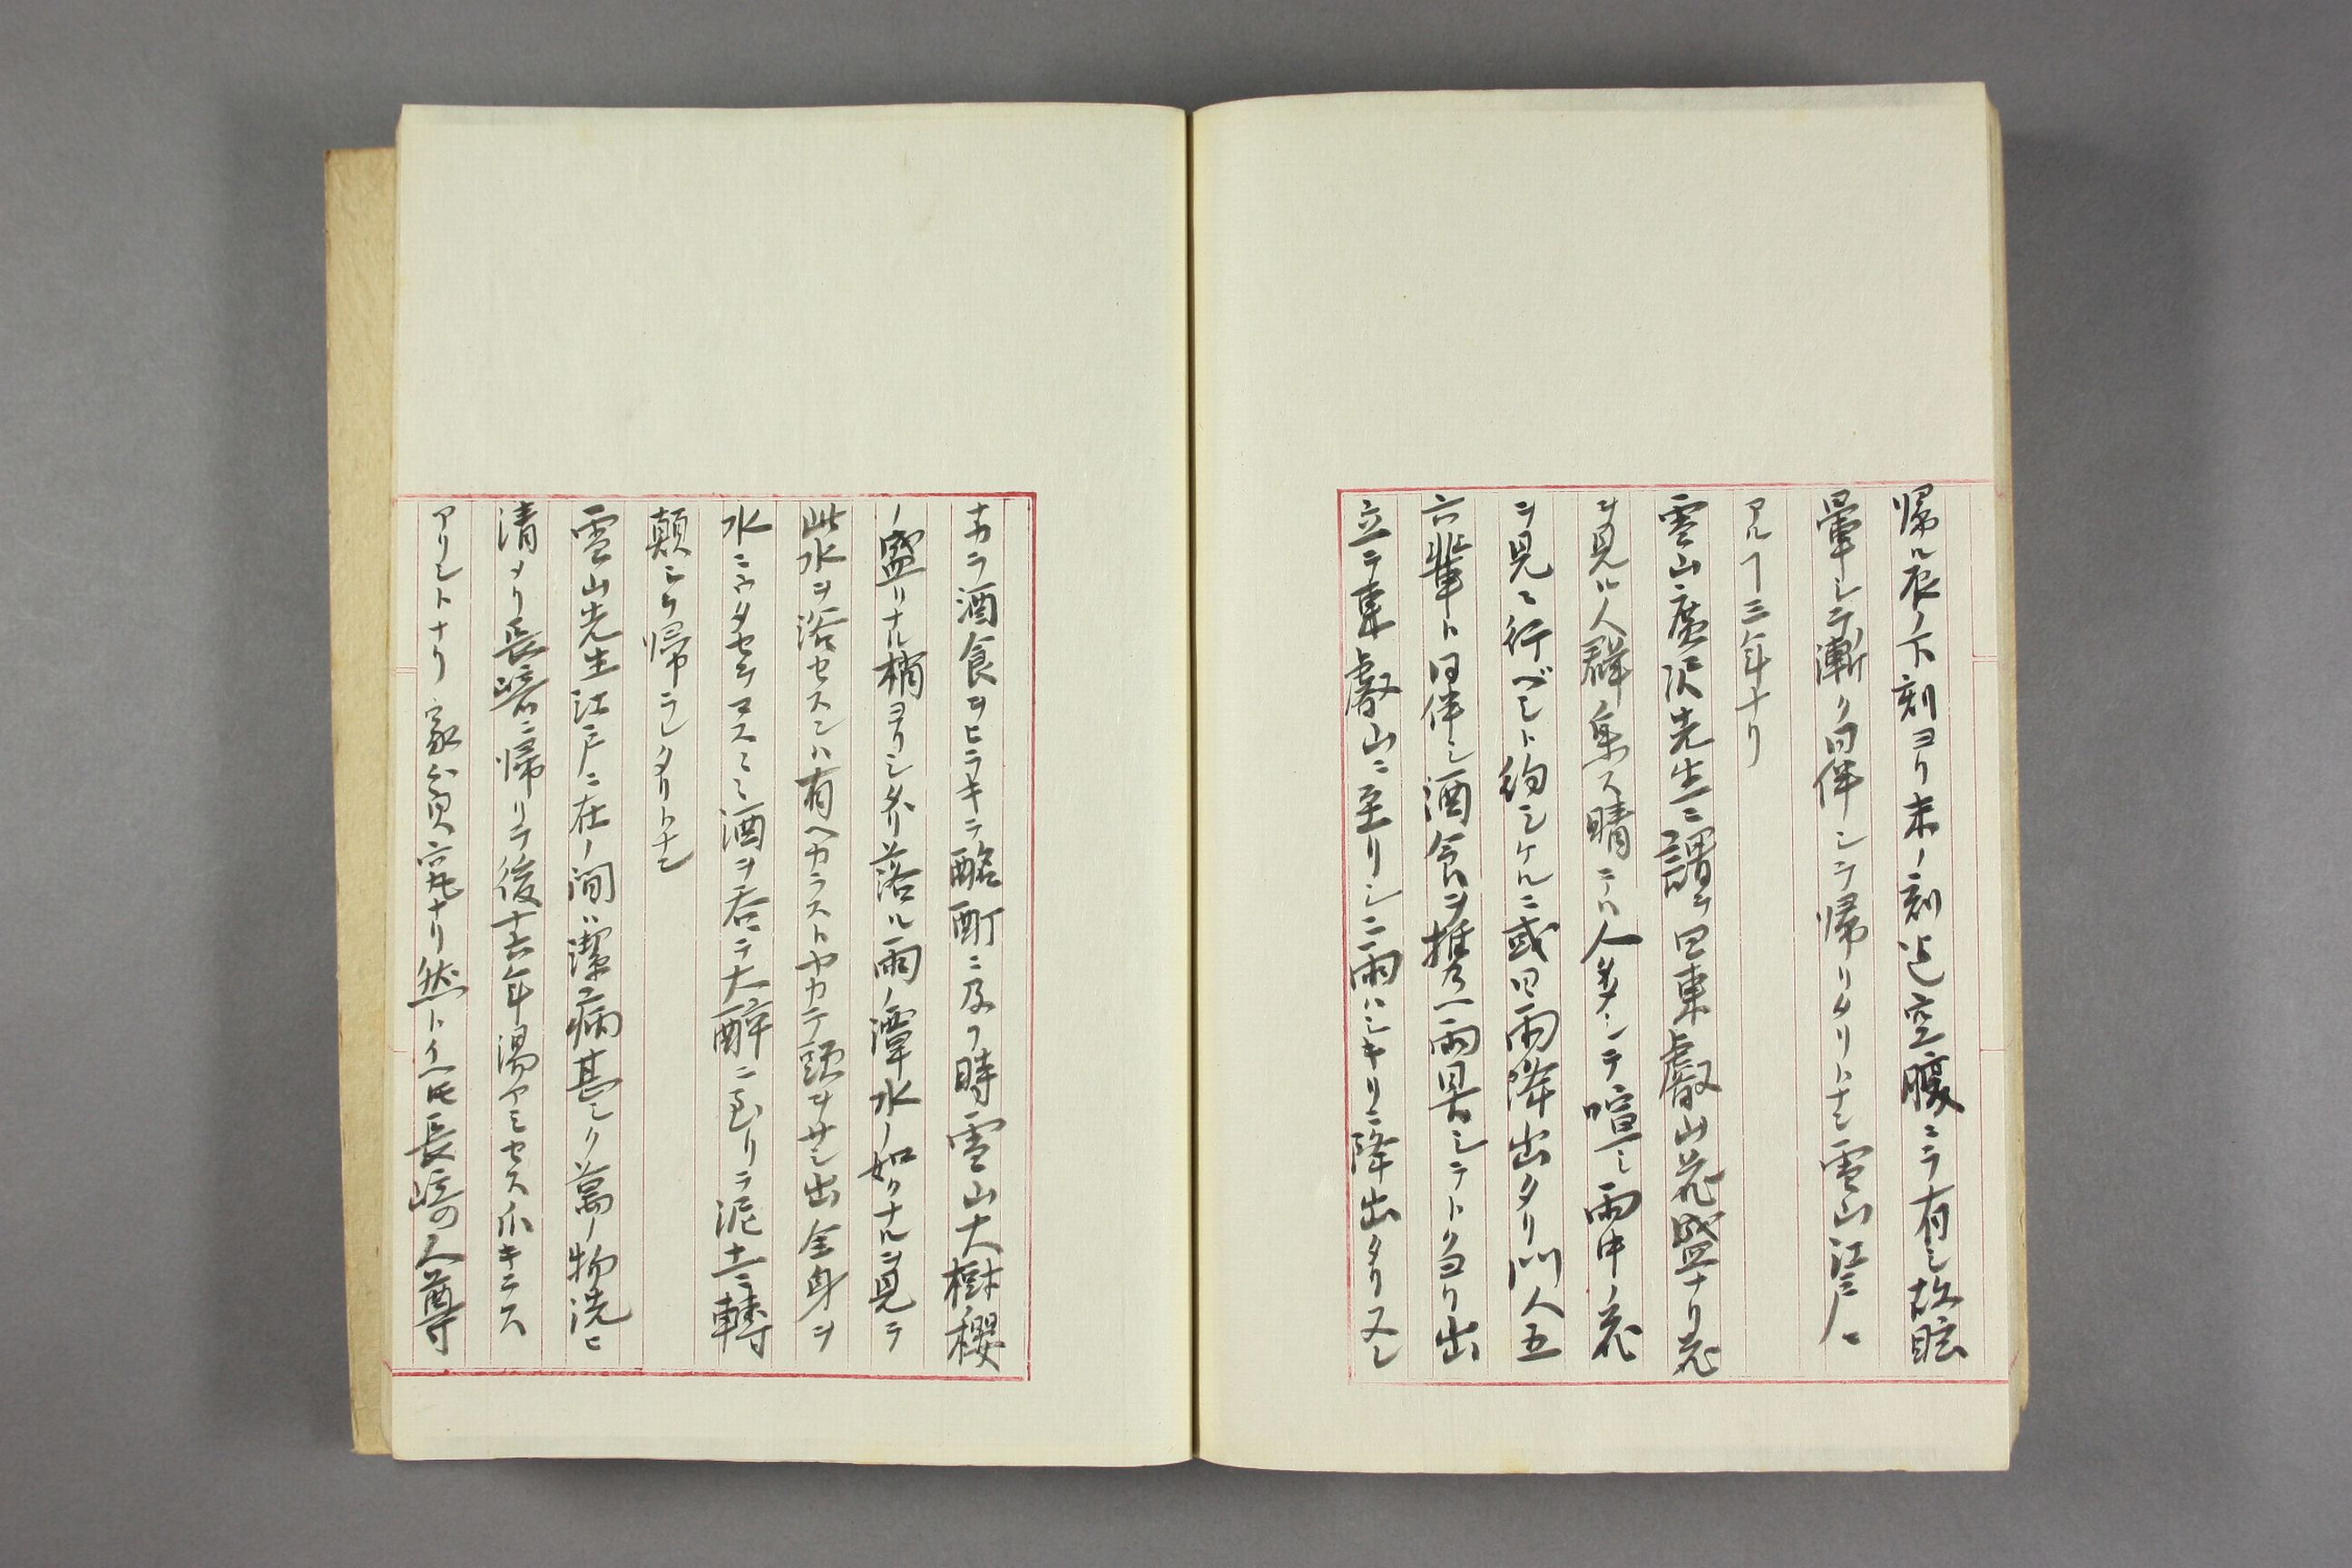 帰ル辰ノ下刻ヨリ未ノ刻迠空腹ニテ有シ故眩
暈シテ漸ク同伴シテ帰リタリトナン雪山江戸ニ
アルヿ三年ナリ
雪山廣沢先生ニ謂テ曰東叡山花盛ナリ花
ヲ見ル人群集ス晴テハ人多クシテ喧シ雨中ノ花
ヲ見ニ行ベシト約シケルニ或曰雨降出タリ門人五
六輩ト同伴シ酒食ヲ携ヘ雨具シテトクヨリ出
立テ東叡山ニ至リシニ雨ハシキリニ降出タリ又シ
ナカラ酒食ヲヒラキテ酩酊ニ及フ時雪山大樹櫻
ノ盛リナル梢ヨリシタヽリ落ル雨ノ潭水ノ如クナルヲ見テ
此水ヲ浴セスンハ有ヘカラストヤカテ頭ヲサシ出全身ヲ
水ニウタセテマスミ酒ヲ呑テ大醉ニ至リテ泥土ニ轉
顛シケ帰ラレタリトナン
雪山先生江戸ニ在ノ間ハ潔病甚シク萬ノ物洗ヒ
清メリ長嵜ニ帰リテ後ハ去年湯アミセス爪キラス
アリシトナリ 家公實六
ナリ然トイヘ𪜈長崎ノ人尊